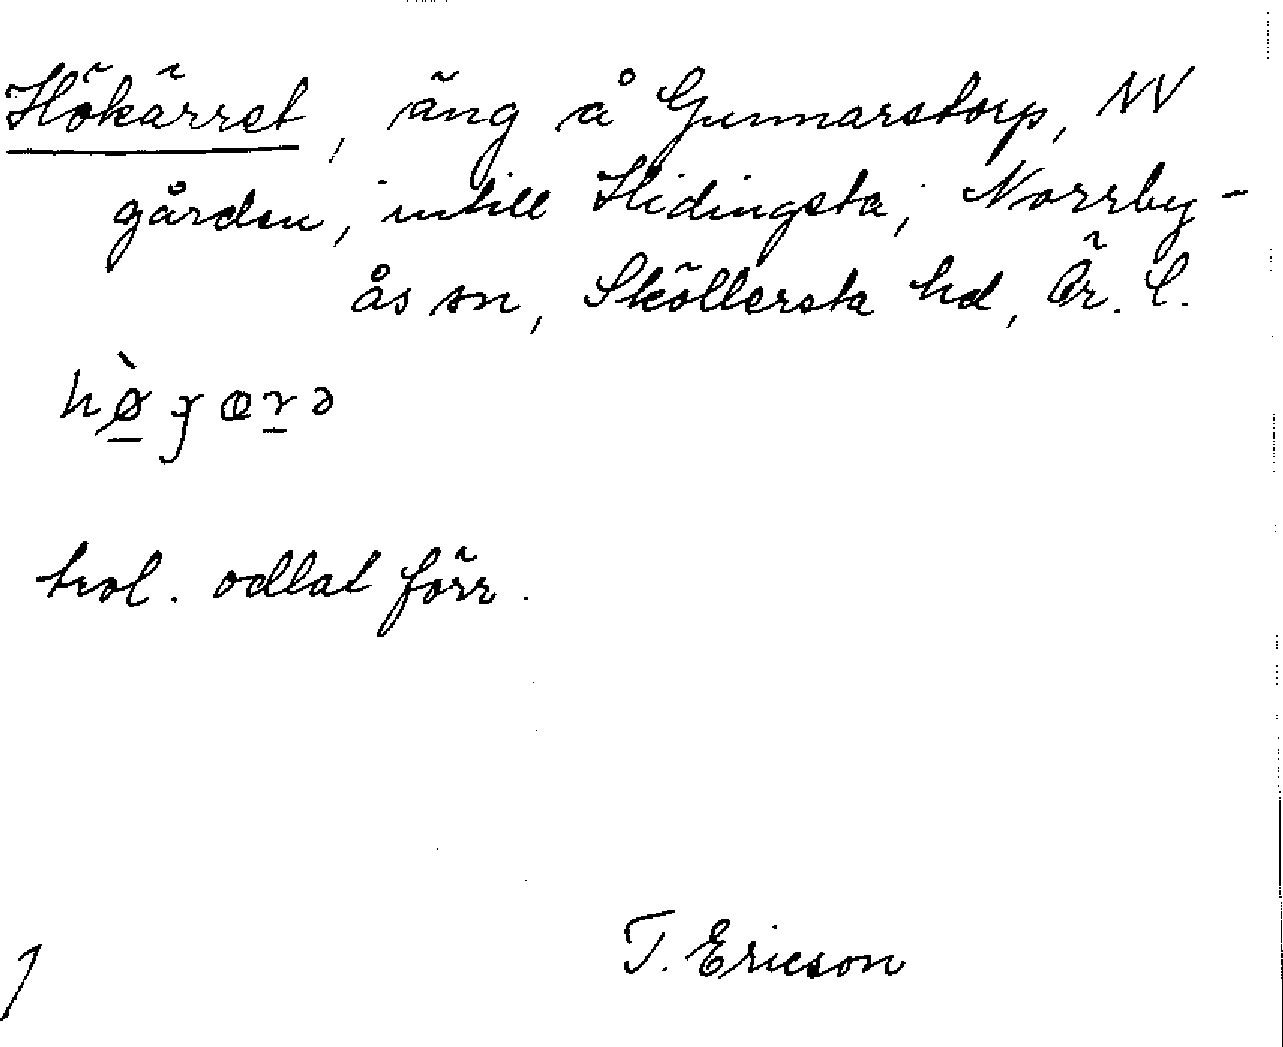 Hökärret, äng å Gunnarstorp, NV
gården, intill Hidingsta, Norrby-
ås sn, Sköllersta hd, Ör. l.
trol. odlat förr.
T. Ericson